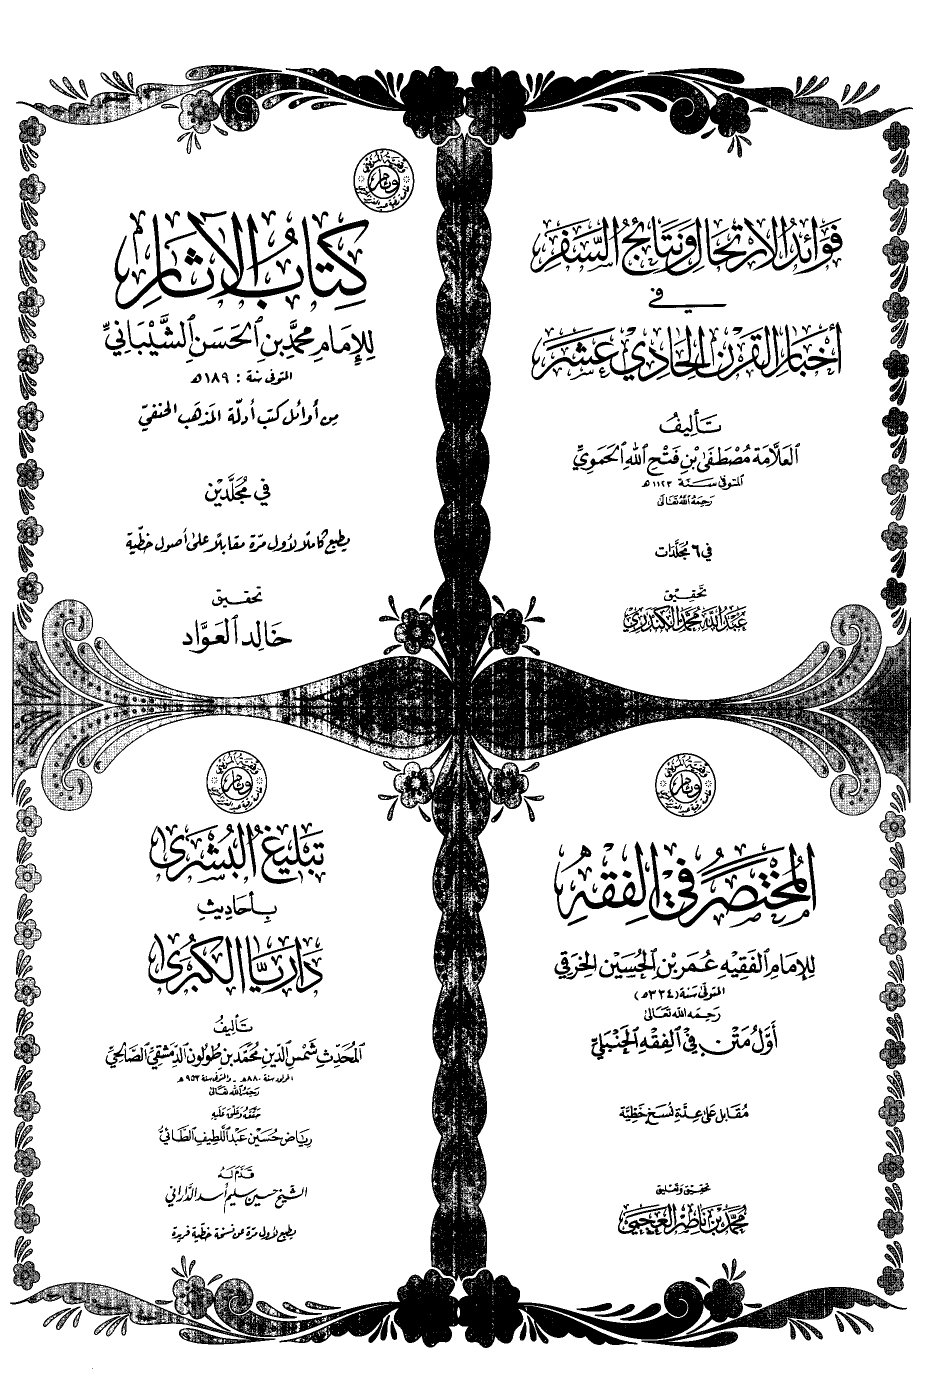 فَوَائِدُ الارْتِحَالِ وَنَتَائِجُ السَّفَرِ
في
أَخْبَارِ القَرْنِ الحَادِي عَشَرَ
تَأْلِيفُ
العَلَّامَة مُصْطَفَى بْنِ فَتْحِ اللهِ الحَمَوِيِّ
المتوفى سَنَة ١١٢٣ هـ
رَحِمَهُ اللهُ تَعَالَى
في ٦ مُجَلَّدَات
تَحْقِيق
عَبْد الله مُحَمَّد الكَنْدَرِي
كِتَابُ الآثَارِ
لِلإِمَامِ مُحَمَّدِ بْنِ الحَسَنِ الشَّيْبَانِيِّ
المتوفى سنة : ١٨٩ هـ
مِن أوائل كتب أدلّة المذهَب الحنفيّ
في مُجَلَّدَيْن
يطبع كاملًا لأول مرّة مقابلًا على أصول خطّية
تحقيق
خَالِد العَوَّاد
المُخْتَصَرُ فِي الفِقْهِ
لِلإِمَامِ الفَقِيهِ عُمَرَ بْنِ الحُسَيْنِ الخِرَقِي
المتوفّى سَنَة (٣٣٤ هـ)
رَحِمَه الله تَعَالى
أَوَّلُ مَتْنٍ فِي الفِقْهِ الحَنْبَلِيِّ
مُقَابَل عَلَى عِدَّةِ نُسَخٍ خَطِّيَّة
تحقيق وتعليق
مُحَمَّد بْن نَاصِر العَجَمِي
تَبْلِيغُ البُشْرَى
بِأَحَادِيثِ
دَارَيَّا الكُبْرَى
تَأْلِيفُ
المُحَدِّثِ شَمْسِ الدِّينِ مُحَمَّدِ بْنِ طُولُون الدِّمَشْقِيِّ الصَّالِحِيِّ
المولود سنة ٨٨٠ هـ - والمتوفى سنة ٩٥٣ هـ
رَحِمَهُ اللهُ تَعَالَى
حَقَّقَهُ وَعَلَّقَ عَلَيْهِ
رِيَاض حُسَيْن عَبْد اللَّطِيف الطَّائِيُّ
قَدَّمَ لَهُ
الشيخ حسين سليم أسد الدَّاراني
يطبع لأول مرّة عن نسخة خطّية فريدة